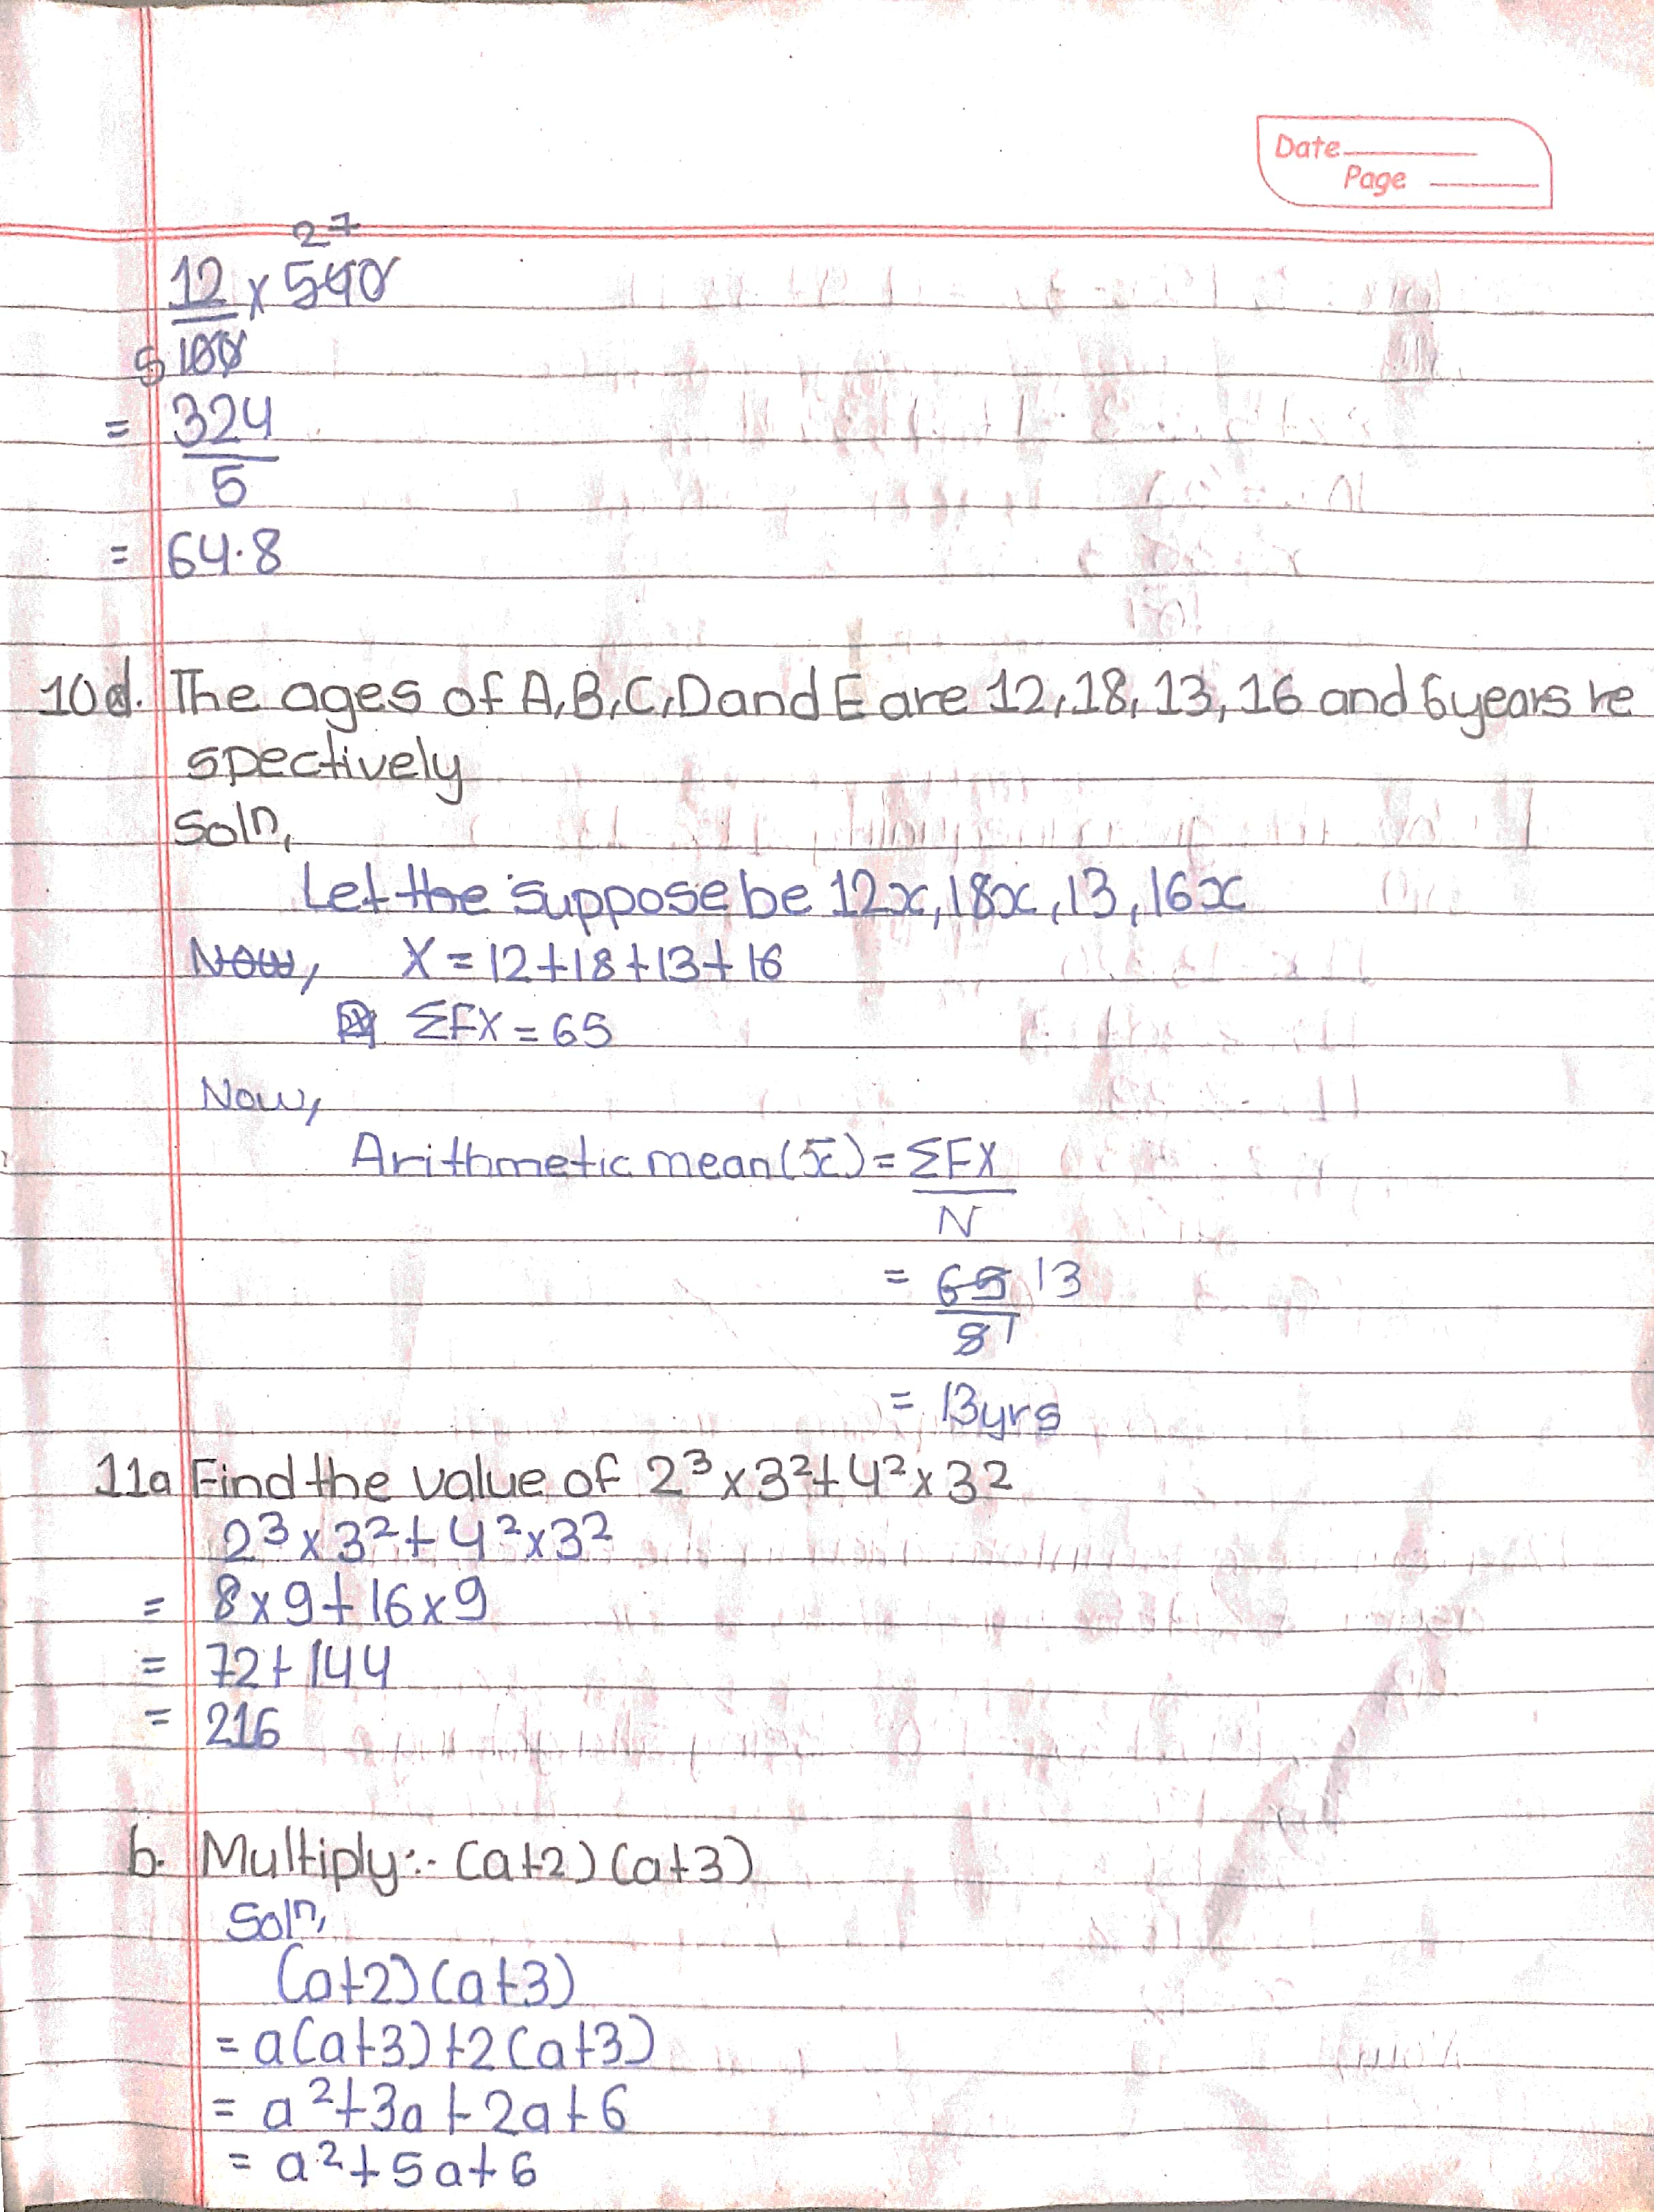 Date
Page
27
12 x 540
5 100
= 324
5
= 64.8
10d. The ages of A, B, C, D and E are 12, 18, 13, 16 and 6 years re
spectively
Soln,
Let the suppose be 12x, 18x, 13, 16x
Now, X = 12+18+13+16
ΣFX = 65
Now,
Arithmetic mean (x̄) = ΣFX
N
= 65 13
1
= 13yrs
11a Find the value of 2³ x 3² + 4² x 32
2³ x 3² + 4² x 3²
= 8 x 9 + 16 x 9
= 72 + 144
= 216
b. Multiply:- (a+2) (a+3)
Soln,
(a+2) (a+3)
= a(a+3) + 2(a+3)
= a² + 3a + 2a + 6
= a² + 5a + 6